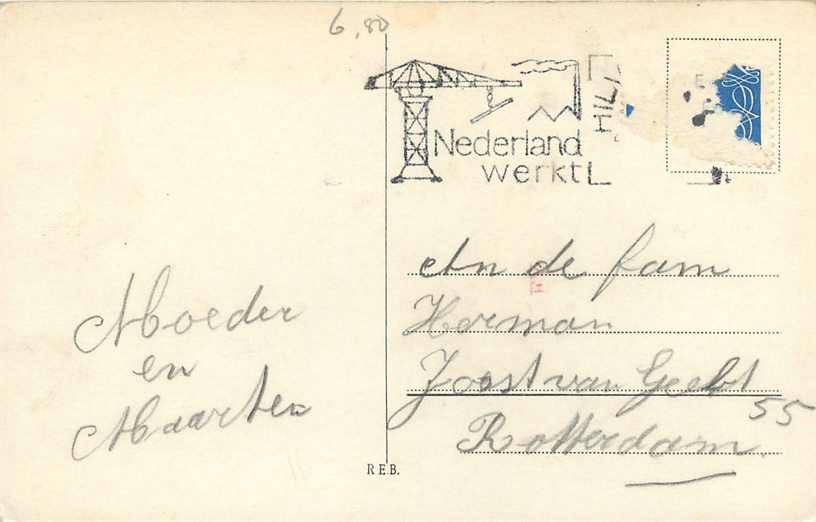 6,80
Nederland
werkt
HIL
Moeder
en
Maarten
An de fam
Herman
Joost van Geelst 55
Rotterdam.
R.E.B.